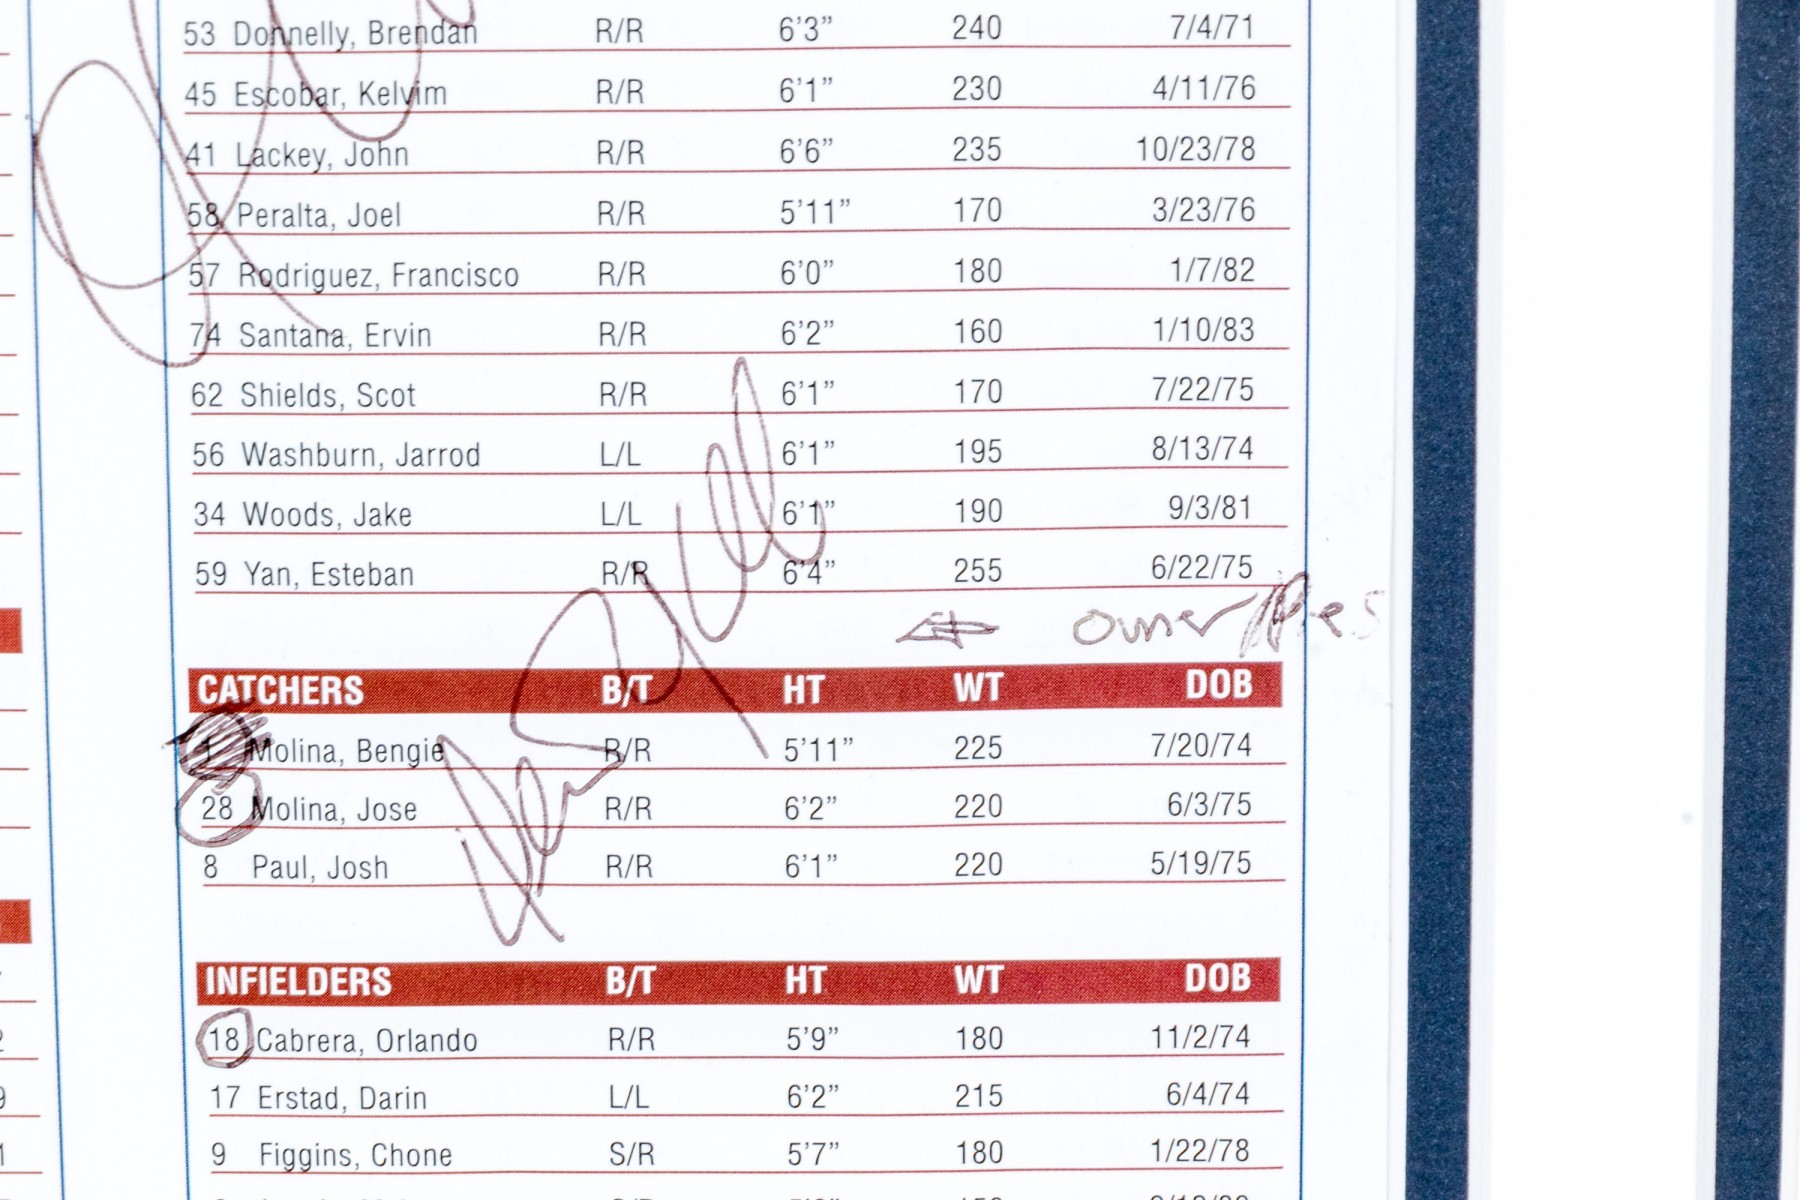 53 Donnelly, Brendan R/R 6'3" 240 7/4/71
45 Escobar, Kelvim R/R 6'1" 230 4/11/76
41 Lackey, John R/R 6'6" 235 10/23/78
58 Peralta, Joel R/R 5'11" 170 3/23/76
57 Rodriguez, Francisco R/R 6'0" 180 1/7/82
74 Santana, Ervin R/R 6'2" 160 1/10/83
62 Shields, Scot R/R 6'1" 170 7/22/75
56 Washburn, Jarrod L/L 6'1" 195 8/13/74
34 Woods, Jake L/L 6'1" 190 9/3/81
59 Yan, Esteban R/R 6'4" 255 6/22/75
owner
CATCHERS B/T HT WT DOB
1 Molina, Bengie R/R 5'11" 225 7/20/74
28 Molina, Jose R/R 6'2" 220 6/3/75
8 Paul, Josh R/R 6'1" 220 5/19/75
INFIELDERS B/T HT WT DOB
18 Cabrera, Orlando R/R 5'9" 180 11/2/74
17 Erstad, Darin L/L 6'2" 215 6/4/74
9 Figgins, Chone S/R 5'7" 180 1/22/78